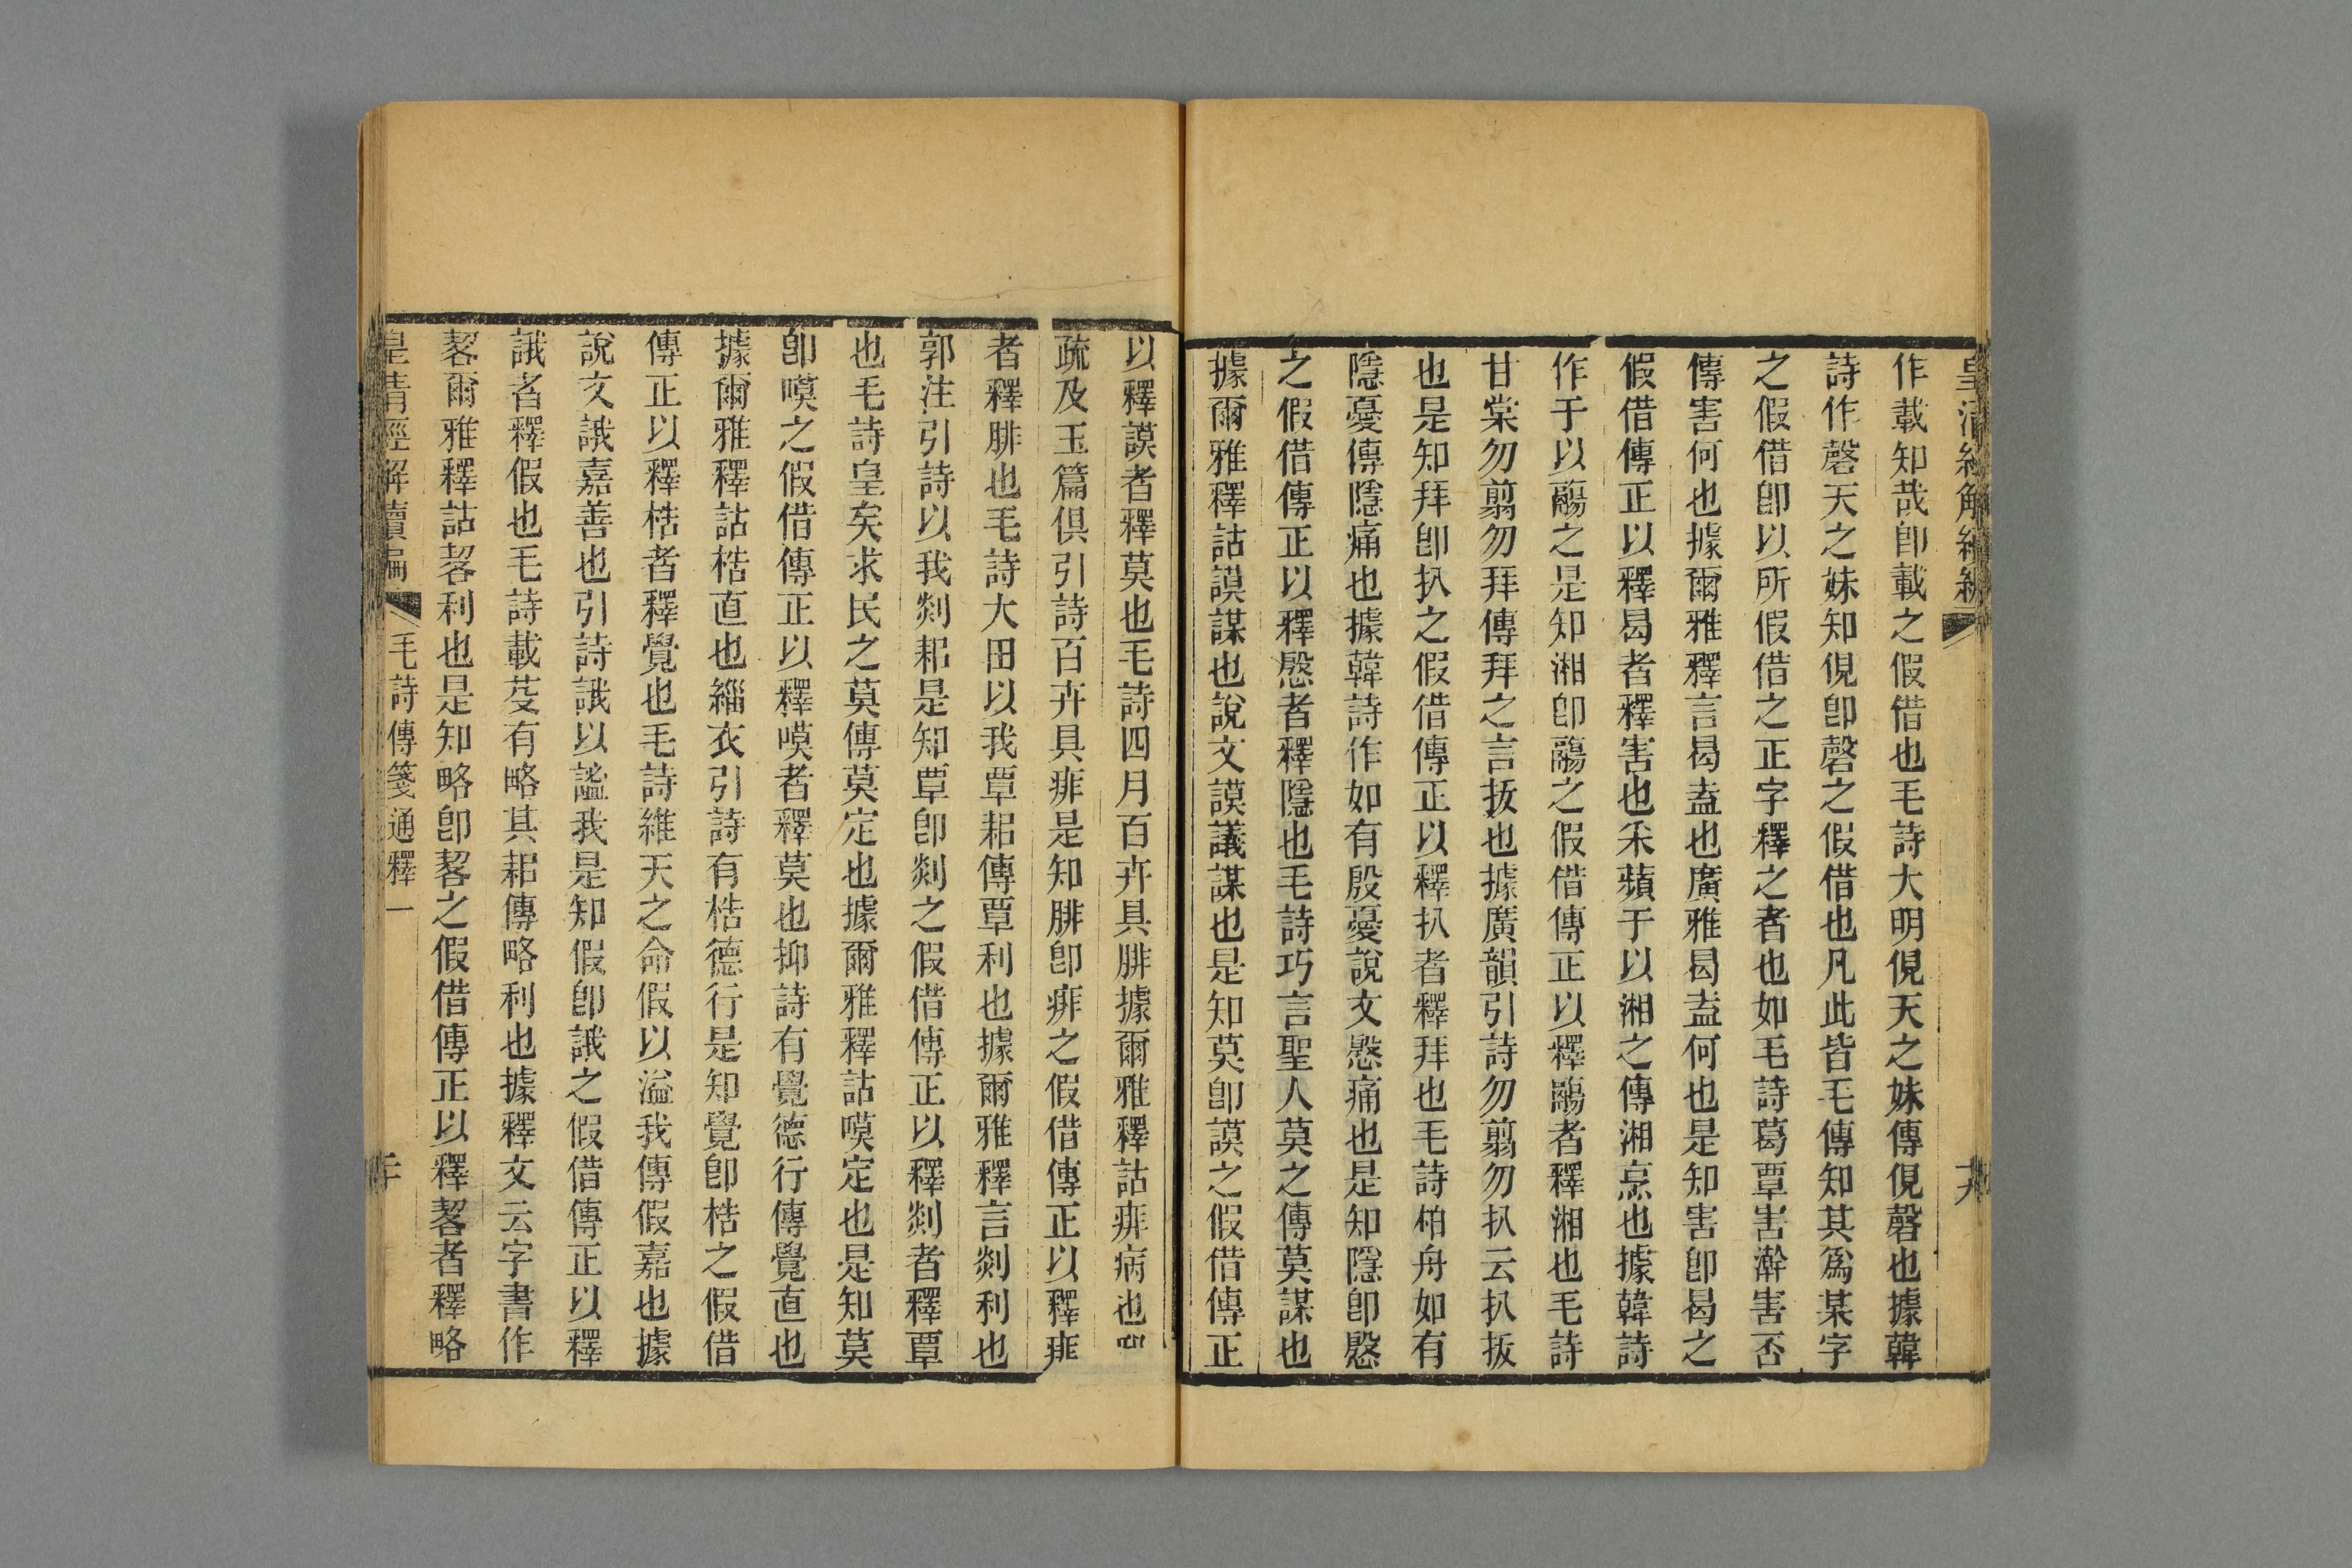 皇清經解續編
作載知哉卽載之假借也毛詩大明俔天之妹傳俔磬也據韓
詩作磬天之妹知俔卽磬之假借也凡此皆毛傳知其爲某字
之假借卽以所假借之正字釋之者也如毛詩葛覃害澣害否
傳害何也據爾雅釋言曷盍也廣雅曷盍何也是知害卽曷之
假借傳正以釋曷者釋害也采蘋于以湘之傳湘烹也據韓詩
作于以鬺之是知湘卽鬺之假借傳正以釋鬺者釋湘也毛詩
甘棠勿翦勿拜傳拜之言拔也據廣韻引詩勿翦勿扒云扒拔
也是知拜卽扒之假借傳正以釋扒者釋拜也毛詩柏舟如有
隱憂傳隱痛也據韓詩作如有殷憂說文慇痛也是知隱卽慇
之假借傳正以釋慇者釋隱也毛詩巧言聖人莫之傳莫謀也
據爾雅釋詁謨謀也說文謨議謀也是知莫卽謨之假借傳正
以釋謨者釋莫也毛詩四月百卉具腓據爾雅釋詁痱病也
疏及玉篇俱引詩百卉具痱是知腓卽痱之假借傳正以釋痱
者釋腓也毛詩大田以我覃耜傳覃利也據爾雅釋言剡利也
郭注引詩以我剡耜是知覃卽剡之假借傳正以釋剡者釋覃
也毛詩皇矣求民之莫傳莫定也據爾雅釋詁嗼定也是知莫
卽嗼之假借傳正以釋嗼者釋莫也抑詩有覺德行傳覺直也
據爾雅釋詁梏直也緇衣引詩有梏德行是知覺卽梏之假借
傳正以釋梏者釋覺也毛詩維天之命假以溢我傳假嘉也據
說文誐嘉善也引詩誐以謐我是知假卽誐之假借傳正以釋
誐者釋假也毛詩載芟有略其耜傳略利也據釋文云字書作
䂮爾雅釋詁䂮利也是知略卽䂮之假借傳正以釋䂮者釋略
皇清經解續編 毛詩傳箋通釋一